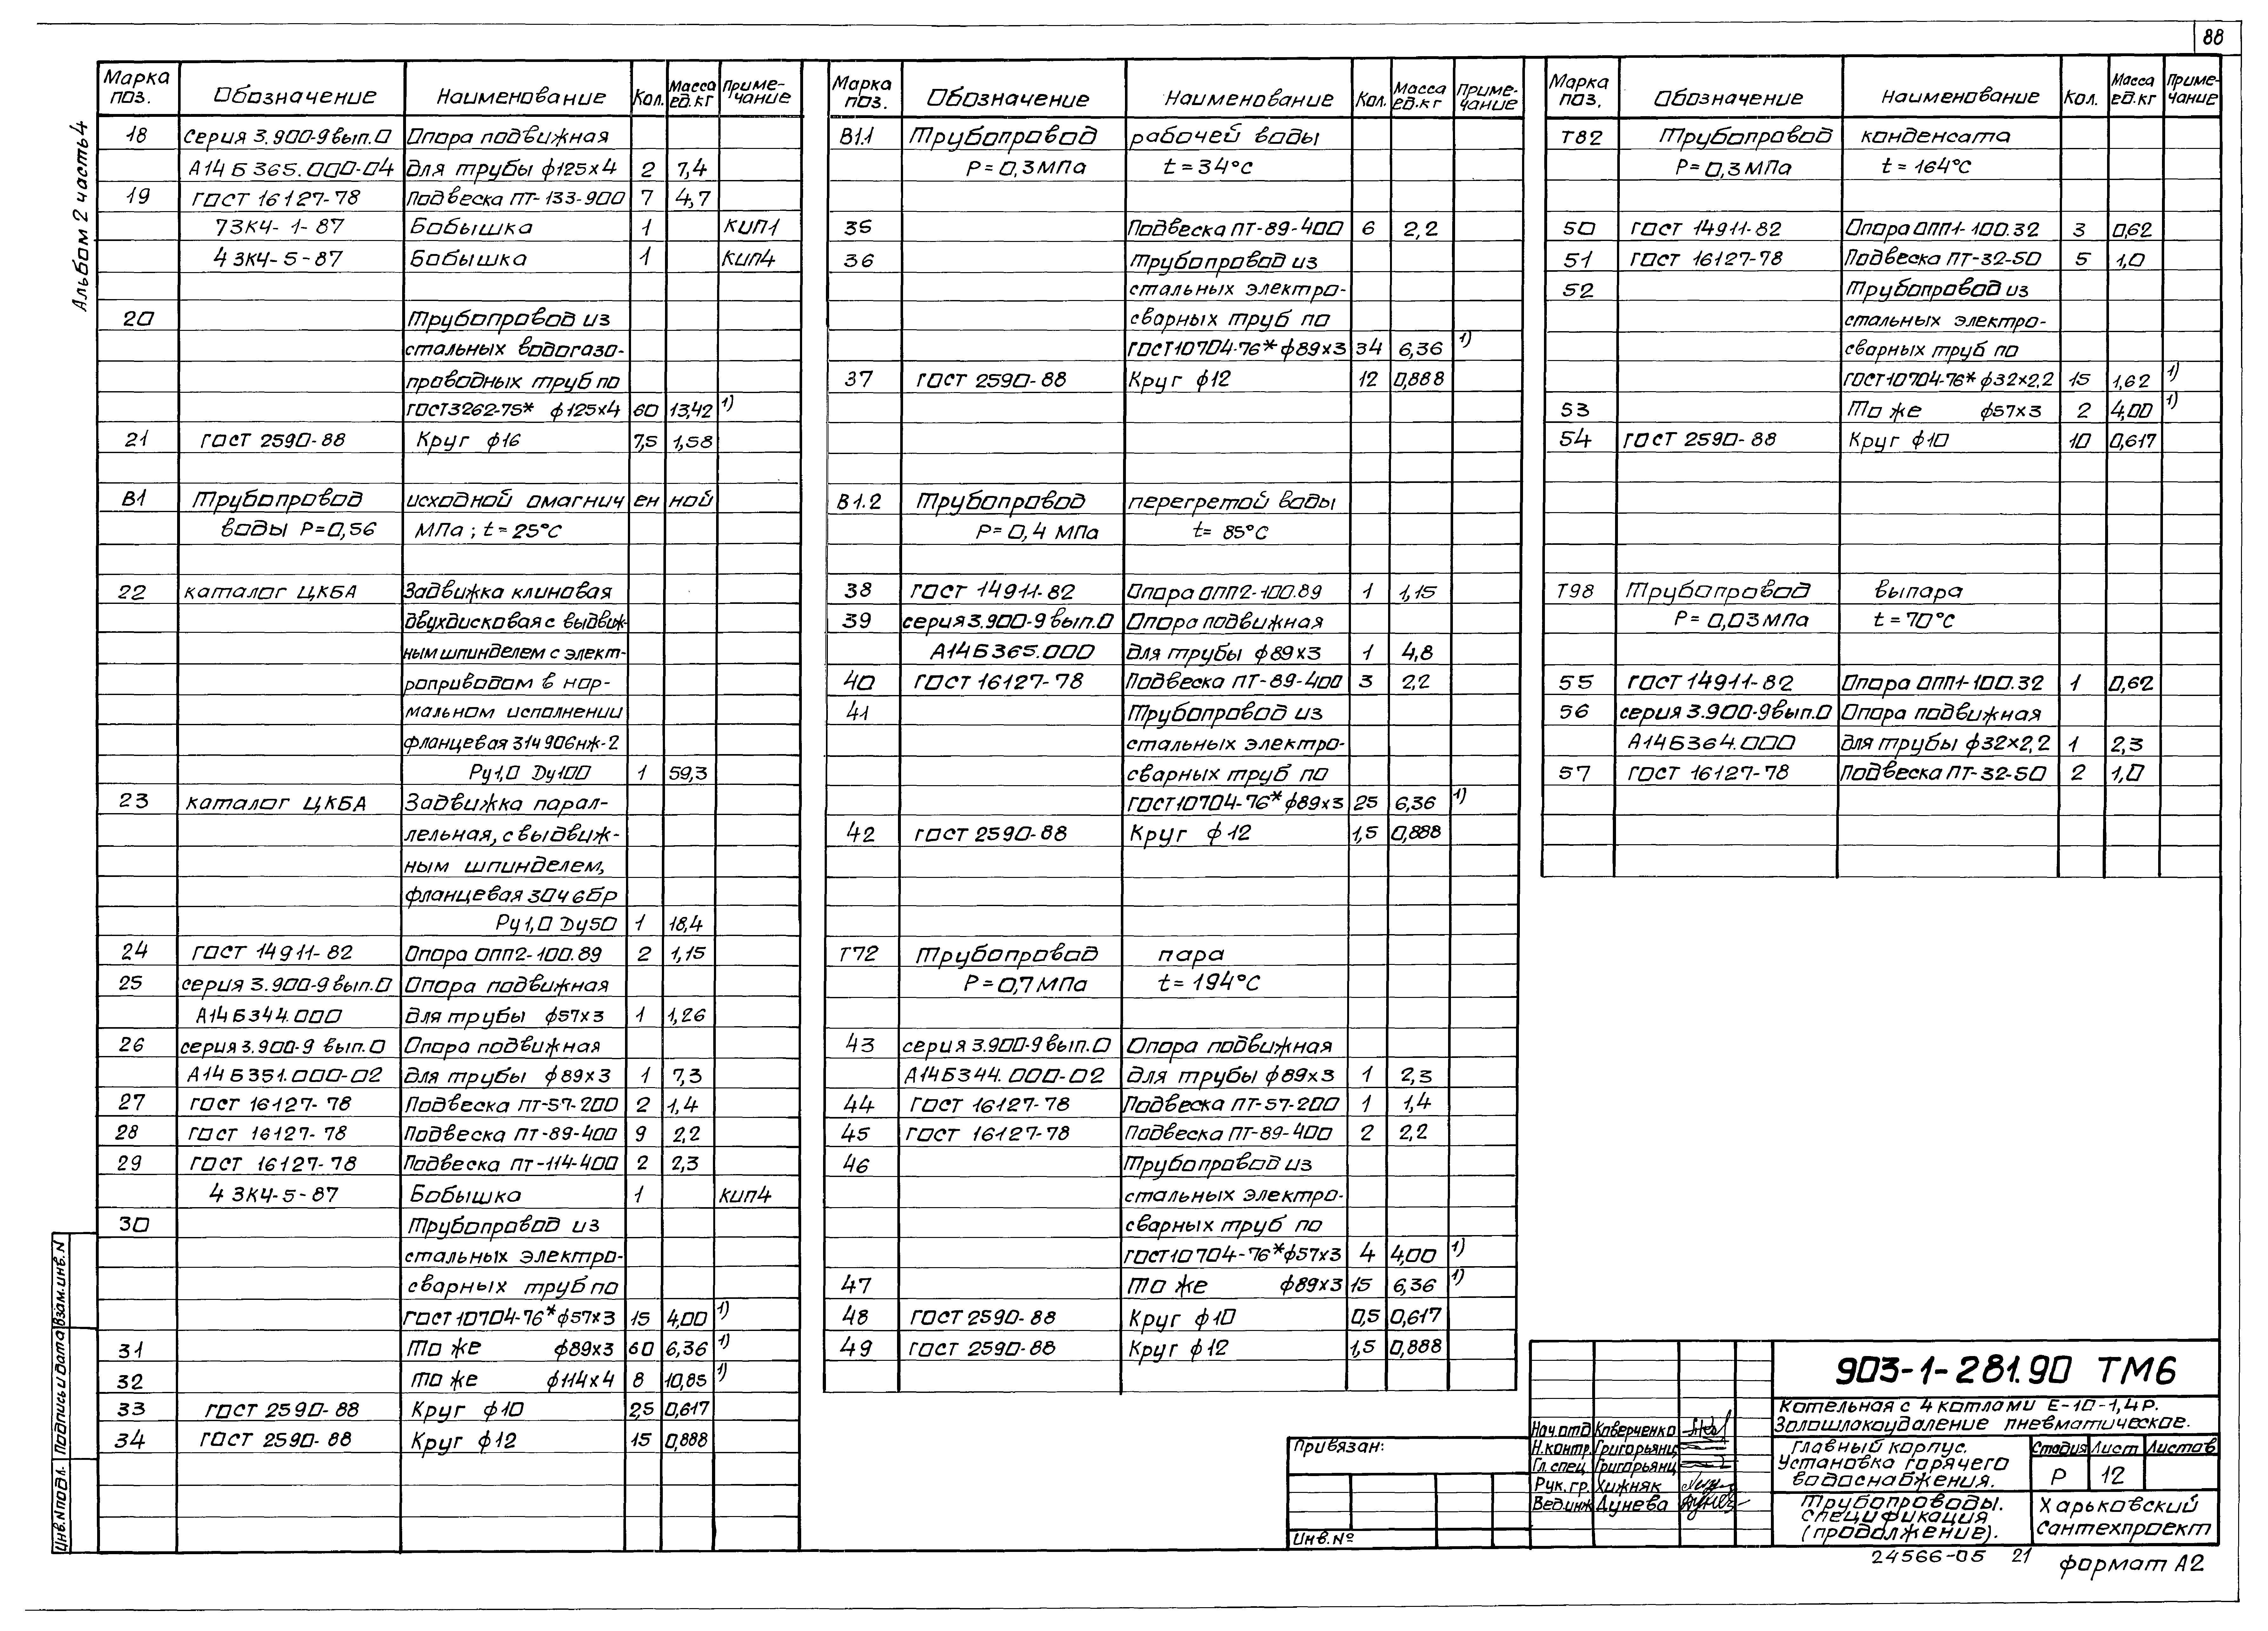 88
Альбом 2 часть 4
Марка поз. Обозначение Наименование Кол. Масса ед.кг Примечание
18 серия 3.900-9 вып.0 Опора подвижная
А14Б365.000-04 для трубы ф125х4 2 7,4
19 ГОСТ 16127-78 Подвеска ПТ-133-900 7 4,7
73К4-1-87 Бобышка 1 КИП1
43К4-5-87 Бобышка 1 КИП4
20 Трубопровод из
стальных водогазо-
проводных труб по
ГОСТ3262-75* ф125х4 60 13,42 1)
21 ГОСТ 2590-88 Круг ф16 7,5 1,58
В1 Трубопровод исходной омагнич ен ной
воды Р=0,56 МПа; t=25°С
22 каталог ЦКБА Задвижка клиновая
двухдисковая с выдвиж-
ным шпинделем с элект-
роприводом в нор-
мальном исполнении
фланцевая 31ч906нж-2
Ру1,0 Ду100 1 59,3
23 каталог ЦКБА Задвижка парал-
лельная, с выдвиж-
ным шпинделем,
фланцевая 30ч6бр
Ру1,0 Ду50 1 18,4
24 ГОСТ 14911-82 Опора ОПП2-100.89 2 1,15
25 серия 3.900-9 вып.0 Опора подвижная
А14Б344.000 для трубы ф57х3 1 1,26
26 серия 3.900-9 вып.0 Опора подвижная
А14Б351.000-02 для трубы ф89х3 1 7,3
27 ГОСТ 16127-78 Подвеска ПТ-57-200 2 1,4
28 ГОСТ 16127-78 Подвеска ПТ-89-400 9 2,2
29 ГОСТ 16127-78 Подвеска ПТ-114-400 2 2,3
43К4-5-87 Бобышка 1 КИП4
30 Трубопровод из
стальных электро-
сварных труб по
ГОСТ10704-76* ф57х3 15 4,00 1)
31 То же ф89х3 60 6,36 1)
32 То же ф114х4 8 10,85 1)
33 ГОСТ 2590-88 Круг ф10 2,5 0,617
34 ГОСТ 2590-88 Круг ф12 15 0,888
Марка поз. Обозначение Наименование Кол. Масса ед.кг Примечание
В1.1 Трубопровод рабочей воды
Р=0,3МПа t=34°С
35 Подвеска ПТ-89-400 6 2,2
36 Трубопровод из
стальных электро-
сварных труб по
ГОСТ10704-76* ф89х3 34 6,36 1)
37 ГОСТ 2590-88 Круг ф12 12 0,888
В1.2 Трубопровод перегретой воды
Р=0,4 МПа t= 85°С
38 ГОСТ 14911-82 Опора ОПП2-100.89 1 1,15
39 серия 3.900-9 вып.0 Опора подвижная
А14Б365.000 для трубы ф89х3 1 4,8
40 ГОСТ 16127-78 Подвеска ПТ-89-400 3 2,2
41 Трубопровод из
стальных электро-
сварных труб по
ГОСТ10704-76* ф89х3 25 6,36 1)
42 ГОСТ 2590-88 Круг ф12 1,5 0,888
Т72 Трубопровод пара
Р=0,7МПа t=194°С
43 серия 3.900-9 вып.0 Опора подвижная
А14Б344.000-02 для трубы ф89х3 1 2,3
44 ГОСТ 16127-78 Подвеска ПТ-57-200 1 1,4
45 ГОСТ 16127-78 Подвеска ПТ-89-400 2 2,2
46 Трубопровод из
стальных электро-
сварных труб по
ГОСТ10704-76* ф57х3 4 4,00 1)
47 То же ф89х3 15 6,36 1)
48 ГОСТ 2590-88 Круг ф10 0,5 0,617
49 ГОСТ 2590-88 Круг ф12 1,5 0,888
Марка поз. Обозначение Наименование Кол. Масса ед.кг Примечание
Т82 Трубопровод конденсата
Р=0,3МПа t=164°С
50 ГОСТ 14911-82 Опора ОПП1-100.32 3 0,62
51 ГОСТ 16127-78 Подвеска ПТ-32-50 5 1,0
52 Трубопровод из
стальных электро-
сварных труб по
ГОСТ10704-76* ф32х2,2 15 1,62 1)
53 То же ф57х3 2 4,00 1)
54 ГОСТ 2590-88 Круг ф10 10 0,617
Т98 Трубопровод выпара
Р=0,03МПа t=70°С
55 ГОСТ 14911-82 Опора ОПП1-100.32 1 0,62
56 серия 3.900-9 вып.0 Опора подвижная
А14Б364.000 для трубы ф32х2,2 1 2,3
57 ГОСТ 16127-78 Подвеска ПТ-32-50 2 1,0
Инв.N подл. Подпись и дата Взам.инв.N
Привязан:
Инв.№
Нач.отд Каверченко
Н.контр. Григорьянц
Гл.спец. Григорьянц
Рук.гр. Хижняк
Вед.инж Дунева
903-1-281.90 ТМ6
Котельная с 4 котлами Е-10-1,4Р.
Золошлакоудаление пневматическое.
Главный корпус.
Установка горячего
водоснабжения.
Стадия Лист Листов
Р 12
Трубопроводы.
Спецификация
(продолжение).
Харьковский
Сантехпроект
24566-05 21
формат А2